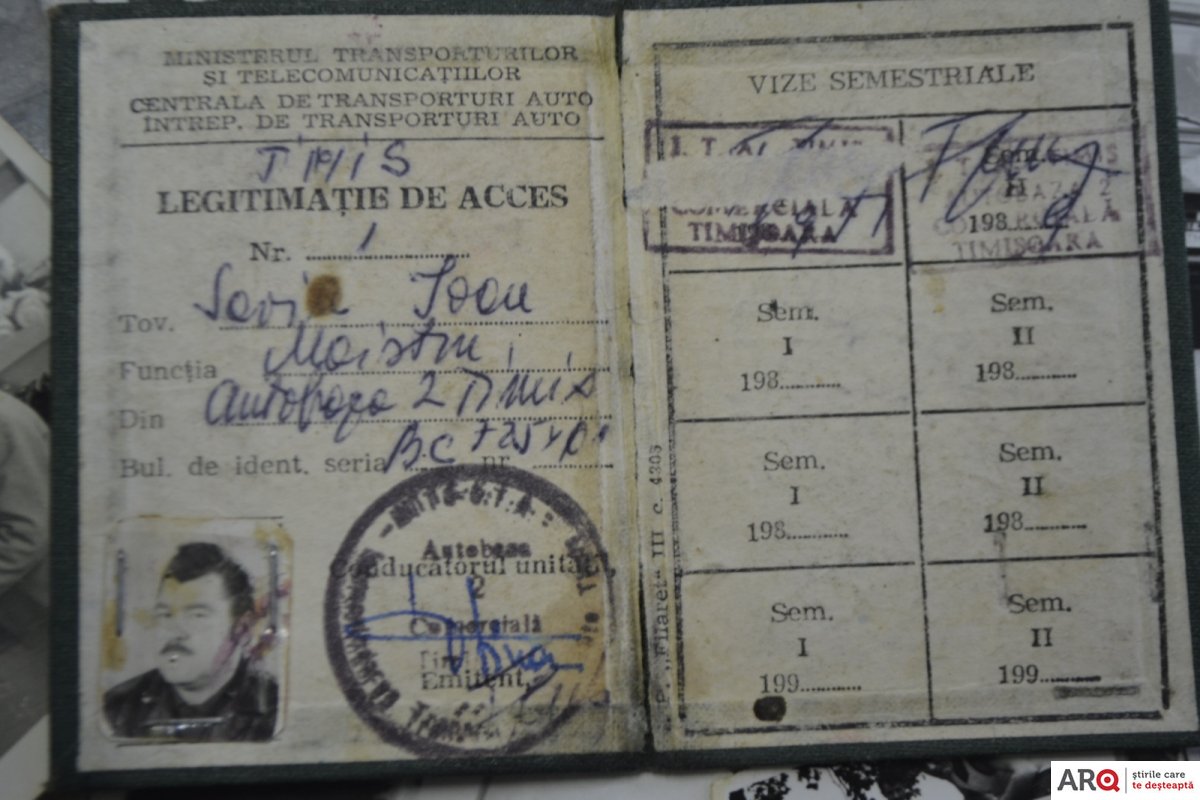 MINISTERUL TRANSPORTURILOR
ȘI TELECOMUNICAȚIILOR
CENTRALA DE TRANSPORTURI AUTO
ÎNTREP. DE TRANSPORTURI AUTO
TIMIS
LEGITIMAȚIE DE ACCES
Nr. 1
Tov. Ioan
Funcția Maistru
Din Autobaza 2 Timis
Bul. de ident. seria BC nr.
Autobaza
Conducătorul unității
2
Comercială
Emitent,
VIZE SEMESTRIALE
COMERCIALĂ
TIMIȘOARA
Sem.
II
198
COMERCIALĂ
TIMIȘOARA
Sem.
I
198
Sem.
II
198
Sem.
I
198
Sem.
II
198
Sem.
I
199
Sem.
II
199
III c. 4306
ARQ știrile care
te deșteaptă